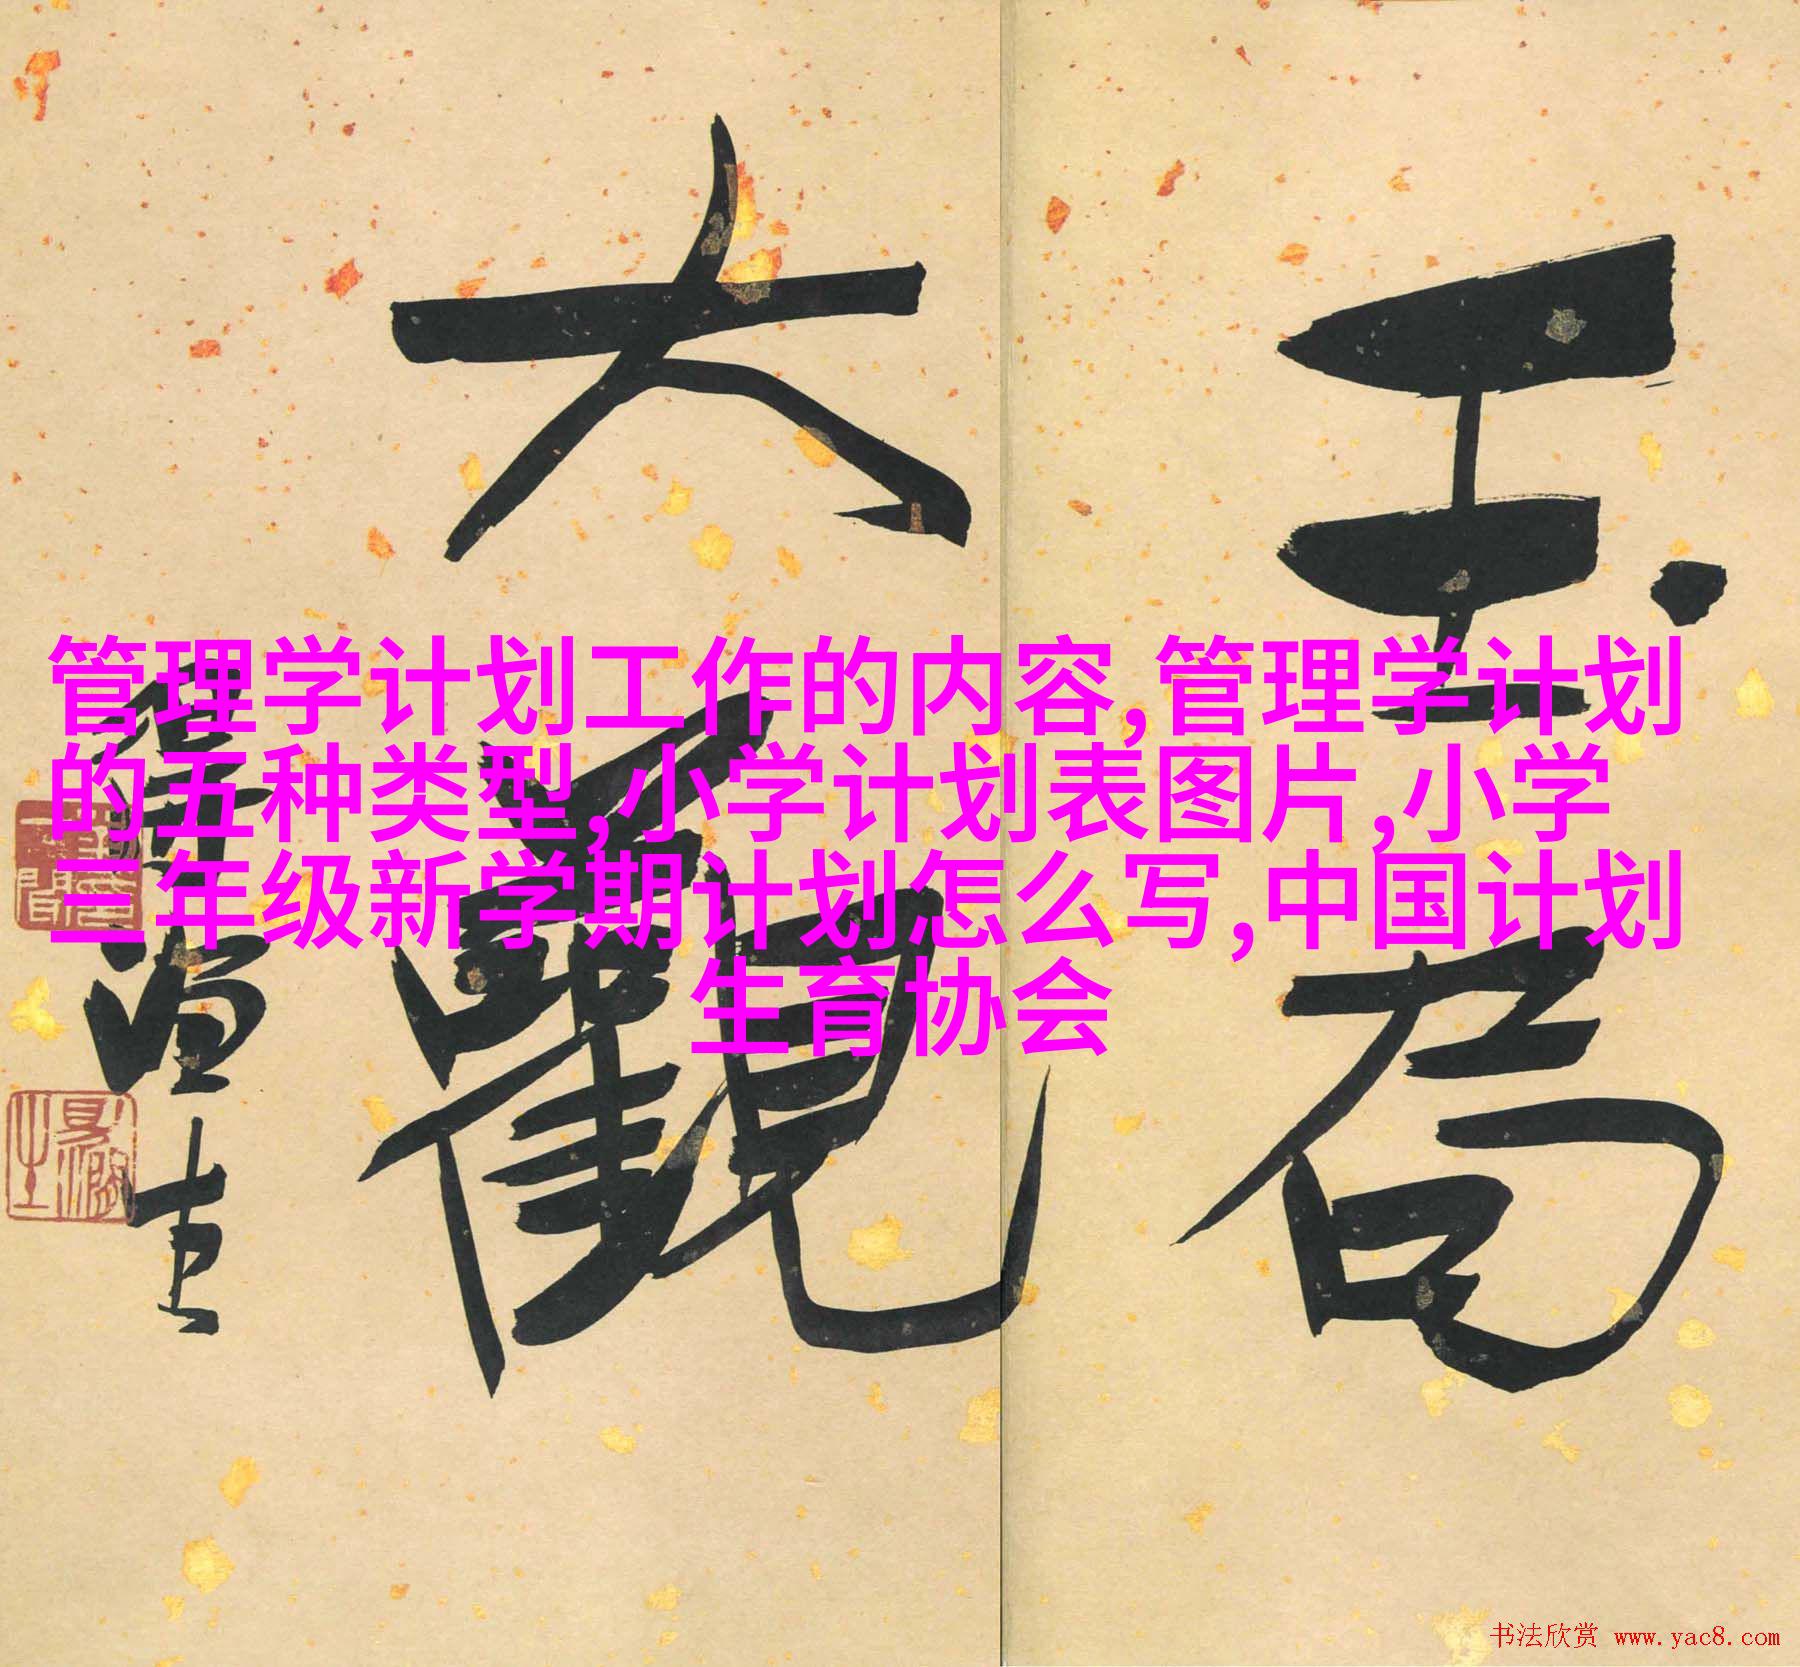 管理学计划工作的内容,管理学计划
的五种类型,小学计划表图片,小学
三年级新学期计划怎么写,中国计划
生育协会
玉局
大觀
书法欣赏 www.yac8.com